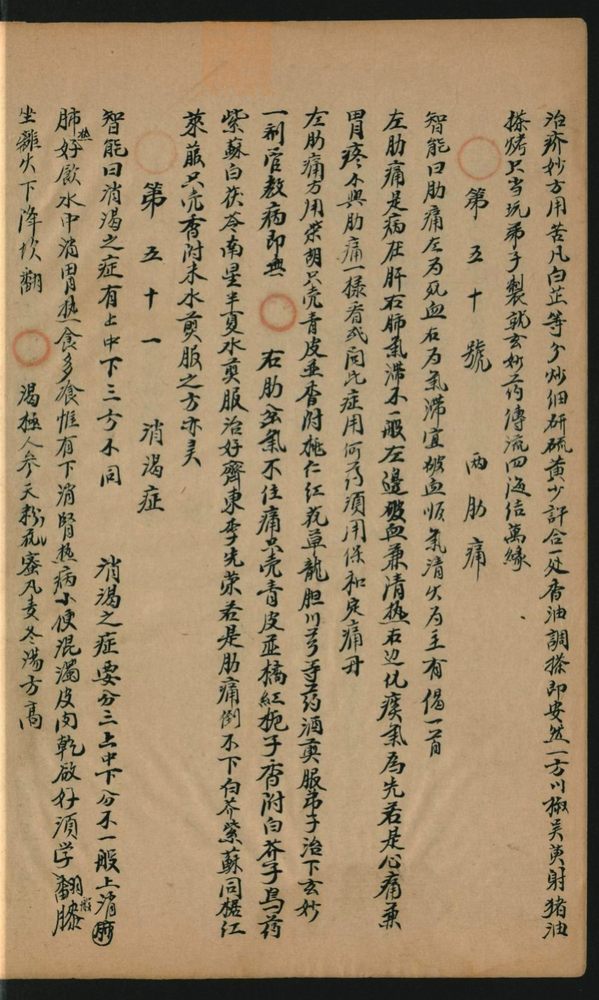 治疥妙方用苦凡白芷等分炒细研硫黄少許合一处香油調搽即安然一方川椒吴萸射猪油
搽烤只当玩弟子製就玄妙药傳流四海结萬緣
第五十號 両肋痛
智能曰肋痛左为死血右为氣滞宜破血順氣清火为主有偈一首
左肋痛是病在肝右肺氣滞不一般左邊破血兼清热右边化痰氣為先若是心痛兼
胃疼不與肋痛一様看或问此症用何药須用保和定痛丹
左肋痛方用柴胡只売青皮並香附桃仁红花草龍胆川芎等药酒煎服弟子治下玄妙
一剂管教病即無 右肋岔氣不住痛只売青皮並橘紅栀子香附白芥子烏药
紫蘇白茯苓南星半夏水煎服治好齊東李先荣若是肋痛倒不下白芥紫蘇同橘红
莱菔只壳香附末水煎服之方亦灵
第五十一 消渴症
智能曰消渴之症有上中下三方不同 消渴之症要分三上中下分不一般上消
肺热好飲水中消胃热食多飡惟有下消腎热病小便混濁皮肉乾欲好須学翻
坐離火下降坎翻 渴極人参天粉瓜蒌凡麦冬湯方高